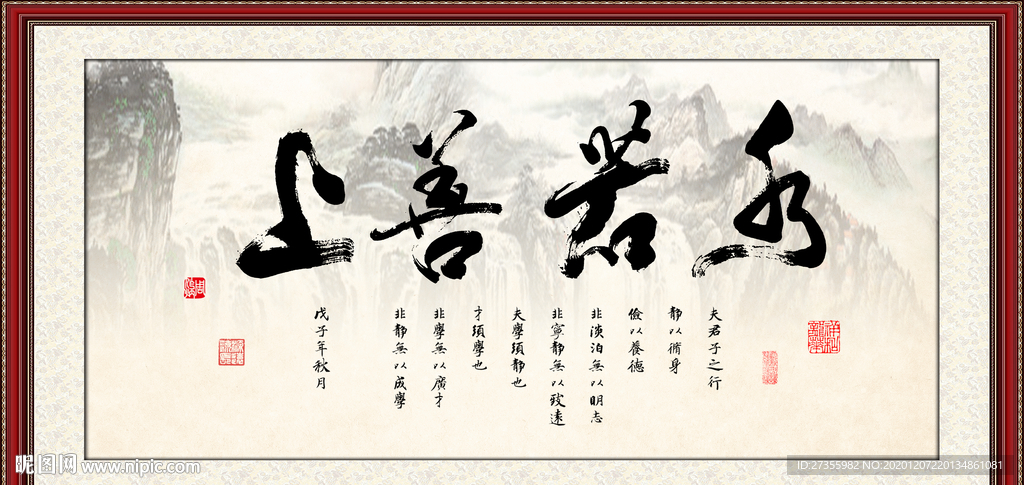 上善若水
夫君子之行
靜以脩身
儉以養德
非淡泊無以明志
非寧靜無以致遠
夫學須靜也
才須學也
非學無以廣才
非靜無以成學
戊子年秋月
昵图网 www.nipic.com
ID:27355982 NO:20201207220134861081